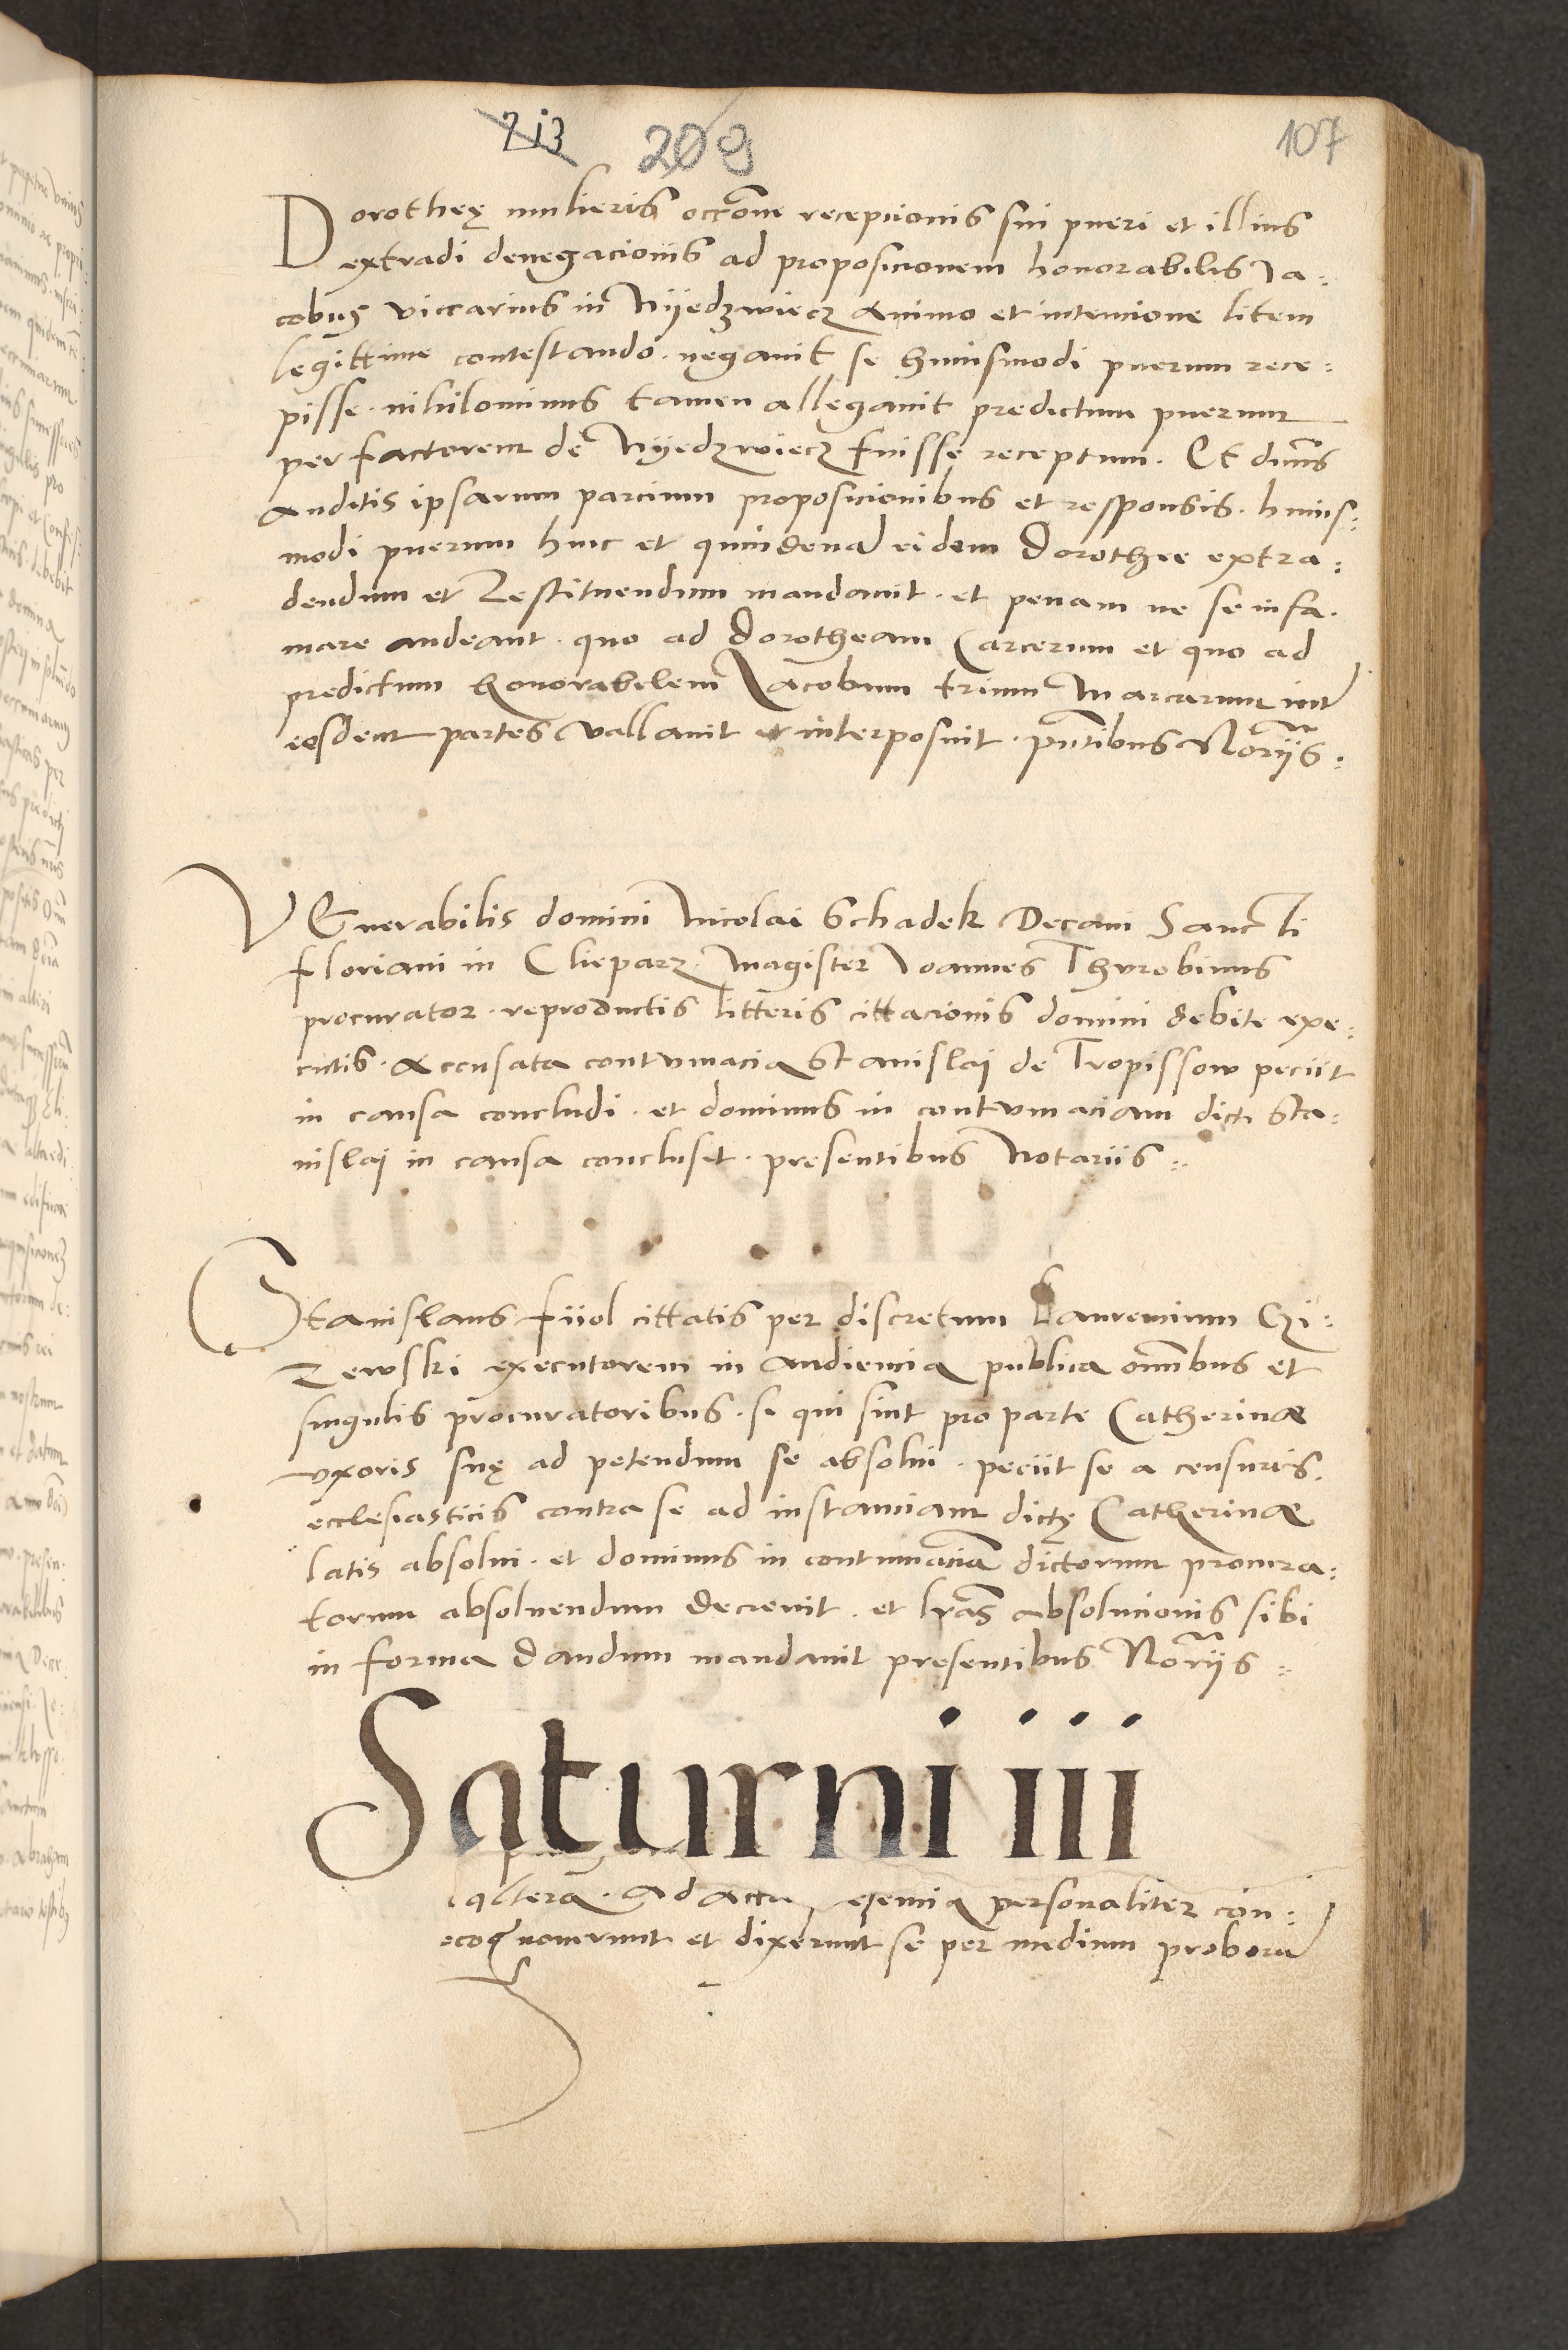 213 209 107
Dorotheę mulieris occõne recepcionis sui pueri et illius
extradi denegacionis ad proposicionem honorabilis Ia-
cobus viccarius in Nyedzwiecz animo et intencione litem
legittime contestando. negauit se huiusmodi puerum rece-
pisse. nihilominus tamen allegauit predictum puerum
per factorem de Nyedzwiecz fuisse receptum. Et dnũs
auditis ipsarum parcium proposicionibus et responsis. huius-
modi puerum hinc et quindena eidem Dorothee extra-
dendum et Restituendum mandauit. et penam ne se infa-
mare audeant. quo ad Dorotheam Carcerum et quo ad
predictum honorabilem Iacobum trium Marcarum int
eosdem partes vallauit et interposuit. pñtibus Norijs.
VEnerabilis domini Nicolai Schadek Decani Sancti
Floriani in Clieparz. Magister Ioannes Thurobinus
procurator. reproductis litteris cittacionis domini debite exe-
cutis. accusata contumacia Stanislaj de Tropissow peciit
in causa concludi. et dominus in contumaciam dicti Sta-
nislaj in causa conclusit. presentibus Notariis.
Stanislaus Fiiol cittatis per discretum Laurencium Czi-
Zewski executorem in audiencia publica omnibus et
singulis procuratoribus. si qui sint pro parte Catherinae
vxoris suę ad petendum se absolui. peciit se a censuris
ecclesiasticis contra se ad instanciam dictę Catherinae
latis absolui. et dominus in contumaciã dictorum procura-
torum absoluendum decreuit. et lrãs absolucionis sibi
in forma dandum mandauit presentibus Norijs.
Saturni iii
alterã. ad actu personaliter con-
ecognouerunt et dixerunt se per medium proborũ